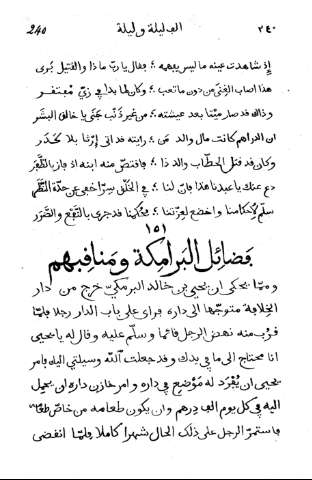 240 الف ليلة وليلة ٢٤٠
إذ شاهدت عينه ما ليس يفهمه ؛ فقال يا ربّ ماذا والقتيل بَرى
هذا أصاب الغِنى من دون ما تعب ؛ وكان لما بدا في زيّ مفتقر
وذاك قد صار ميّتا بعد عيشته ؛ من غير ذَنْب جَنى يا خالق البشر
إن الدراهم كانت مال والد مَن ؛ رايته قد اتى إرثا بلا كَدَر
وكان قد قتل الحطّاب والد ذا ؛ فاقتصّ منه ابنه إذ فاز بالظَّفَر
دع عنك يا عبدنا هذا فإنّ لنا ؛ في الخَلْق سرّا خفي عن حدّة النَّظَر
سلّم لأحكامنا واخضع لعزّتنا ؛ فحكمنا قد جرى بالنَّفع والضَّرَر
١٥١
فضائل البرامكة ومناقبهم
وممّا يحكى ان يحيى بن خالد البرمكيّ خرج من دار
الخلافة متوجّها الى داره فراى على باب الدار رجلا فلمّا
قرب منه نهض الرجل قائما وسلّم عليه وقال له يا يحيى
انا محتاج الى ما في يدك وقد جعلت اللّٰه وسيلتي اليك فامر
يحيى ان يُفْرَد له موضع في داره وامر خازن داره ان يحمل
اليه في كل يوم الف درهم وان يكون طعامه من خاصّ طعامه
فاستمرّ الرجل على ذلك الحال شهرا كاملا فلمّا انقضى